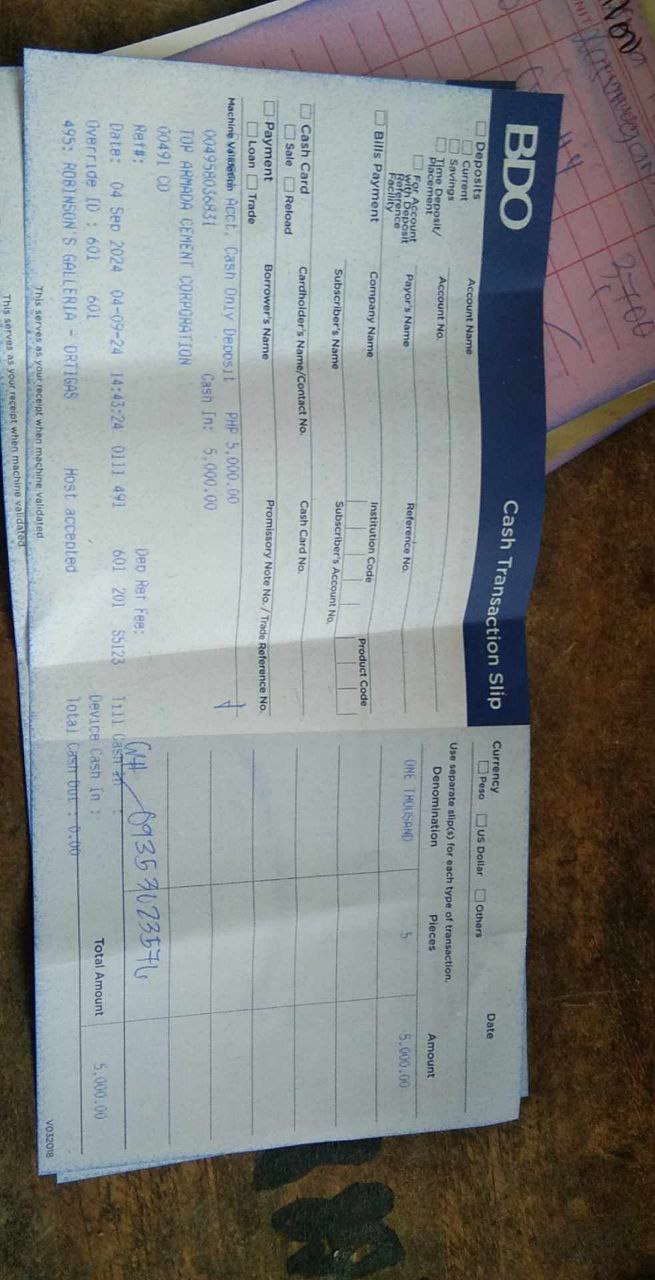 BDO
Cash Transaction Slip
Deposits
Current
Savings
Time Deposit/
Placement
For Account
with Deposit
Reference
Facility
Account Name
Account No.
Payor's Name
Reference No.
Bills Payment
Company Name
Institution Code
Product Code
Subscriber's Name
Subscriber's Account No.
Cash Card
Sale
Reload
Cardholder's Name/Contact No.
Cash Card No.
Payment
Loan
Trade
Borrower's Name
Promissory Note No. / Trade Reference No.
Currency
Peso
US Dollar
Others
Date
Use separate slip(s) for each type of transaction.
Denomination
Pieces
Amount
ONE THOUSAND 5 5,000.00
Machine Validation Acct. Cash Only Deposit PHP 5,000.00
004958036831 Cash In: 5,000.00
TOP ARMADA CEMENT CORPORATION
00491 CD
Ref#: Dep Ref Fee:
Date: 04 Sep 2024 04-09-24 14:43:24 0111 491 601 201 S5123 Till Cash In :
Override ID : 601 601 Device Cash In :
495: ROBINSON'S GALLERIA - ORTIGAS Host accepted Total Cash Out : 0.00
Total Amount 5,000.00
This serves as your receipt when machine validated
V032018
This serves as your receipt when machine validated
#4
3,700